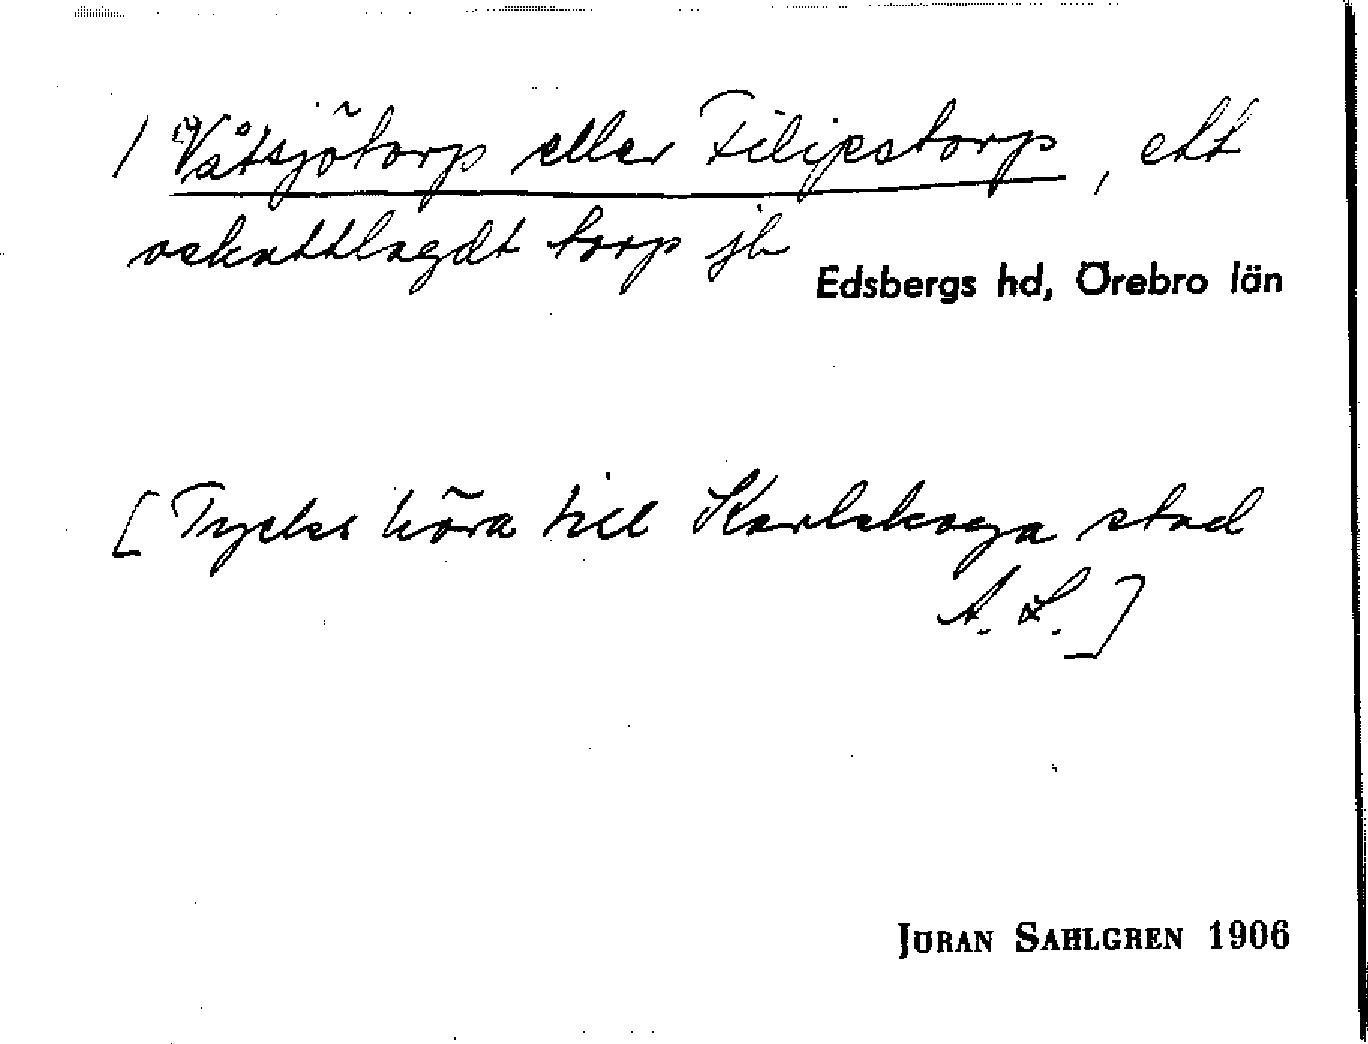 / Våtsjötorp eller Filipstorp, ett
oskattlagdt torp jb
Edsbergs hd, Örebro län
[Tyckes höra till Karlskoga stad
A. L.]
JÖRAN SAHLGREN 1906